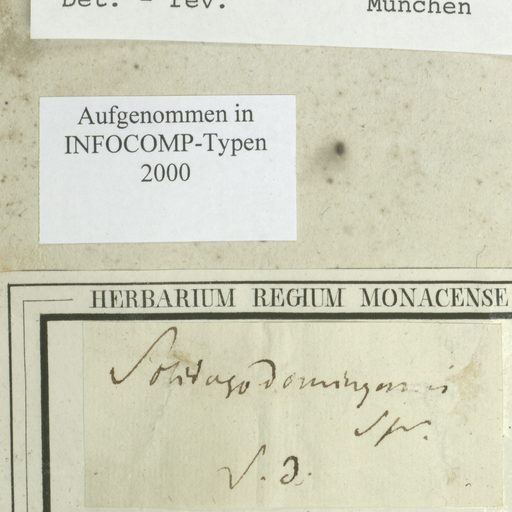 Det. – rev. München
Aufgenommen in
INFOCOMP-Typen
2000
HERBARIUM REGIUM MONACENSE
Solidago domingensis
Spr.
S. D.